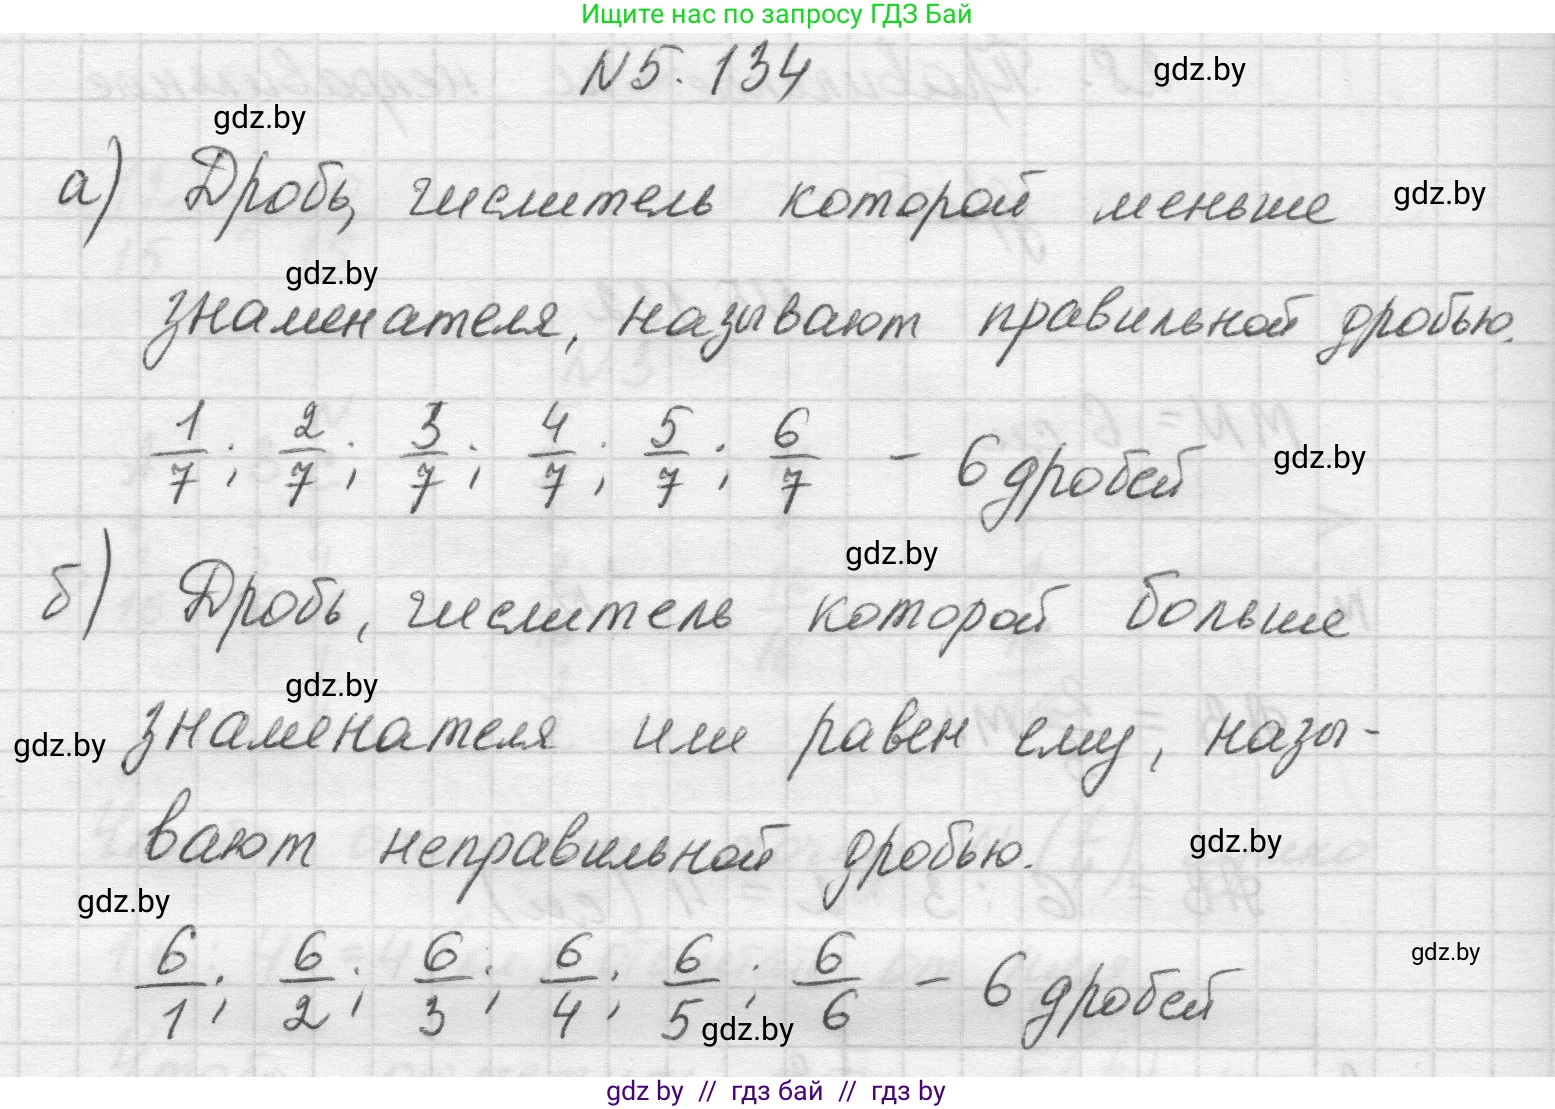 Ищите нас по запросу ГДЗ Бай
N5.134
gdz.by
gdz.by
а) Дробь, числитель которой меньше
gdz.by
gdz.by
знаменателя, называют правильной дробью.
1/7; 2/7; 3/7; 4/7; 5/7; 6/7 - 6 дробей
gdz.by
gdz.by
б) Дробь, числитель которой больше
gdz.by
gdz.by
знаменателя или равен ему, назы-
вают неправильной дробью.
gdz.by
gdz.by
6/1; 6/2; 6/3; 6/4; 6/5; 6/6 - 6 дробей
gdz.by
gdz.by
gdz by // гдз бай // гдз by